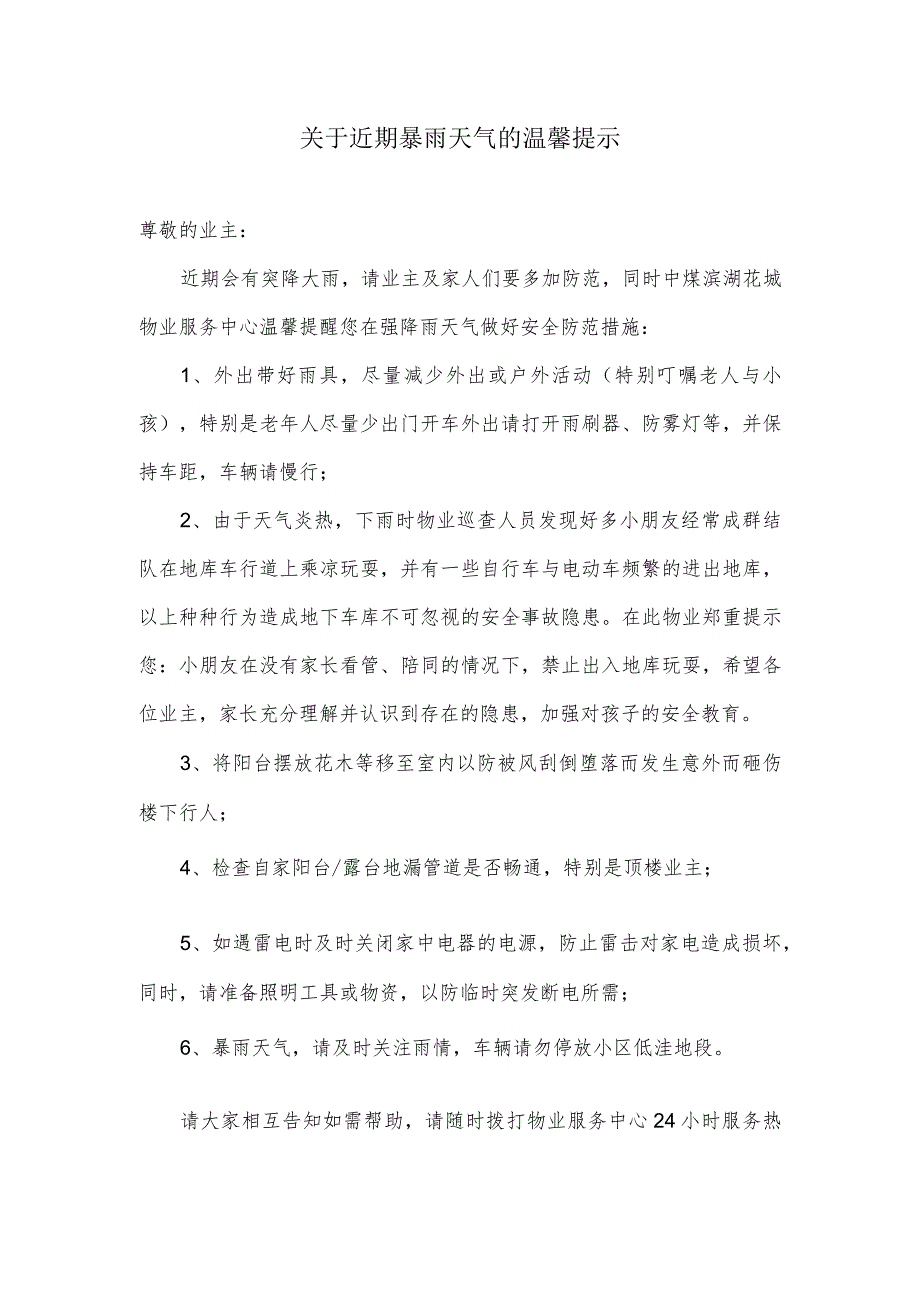 关于近期暴雨天气的温馨提示
尊敬的业主：
近期会有突降大雨，请业主及家人们要多加防范，同时中煤滨湖花城
物业服务中心温馨提醒您在强降雨天气做好安全防范措施：
1、外出带好雨具，尽量减少外出或户外活动（特别叮嘱老人与小
孩），特别是老年人尽量少出门开车外出请打开雨刷器、防雾灯等，并保
持车距，车辆请慢行；
2、由于天气炎热，下雨时物业巡查人员发现好多小朋友经常成群结
队在地库车行道上乘凉玩耍，并有一些自行车与电动车频繁的进出地库，
以上种种行为造成地下车库不可忽视的安全事故隐患。在此物业郑重提示
您：小朋友在没有家长看管、陪同的情况下，禁止出入地库玩耍，希望各
位业主，家长充分理解并认识到存在的隐患，加强对孩子的安全教育。
3、将阳台摆放花木等移至室内以防被风刮倒堕落而发生意外而砸伤
楼下行人；
4、检查自家阳台/露台地漏管道是否畅通，特别是顶楼业主；
5、如遇雷电时及时关闭家中电器的电源，防止雷击对家电造成损坏，
同时，请准备照明工具或物资，以防临时突发断电所需；
6、暴雨天气，请及时关注雨情，车辆请勿停放小区低洼地段。
请大家相互告知如需帮助，请随时拨打物业服务中心24小时服务热